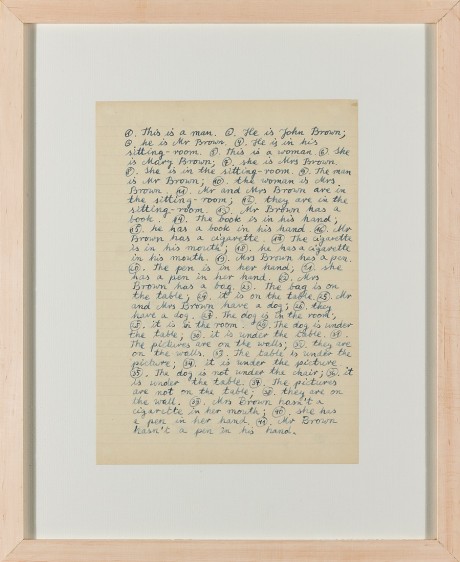 ①. This is a man. ②. He is John Brown;
③. he is Mr Brown. ④. He is in his
sitting-room. ⑤. This is a woman. ⑥. She
is Mary Brown; ⑦. she is Mrs Brown.
⑧. She is in the sitting-room. ⑨. The man
is Mr Brown; ⑩. the woman is Mrs
Brown. ⑪. Mr and Mrs Brown are in
the sitting-room; ⑫. they are in the
sitting-room. ⑬. Mr Brown has a
book. ⑭. The book is in his hand;
⑮. he has a book in his hand. ⑯. Mr
Brown has a cigarette. ⑰. The cigarette
is in his mouth; ⑱. he has a cigarette
in his mouth. ⑲. Mrs Brown has a pen.
⑳. The pen is in her hand; ㉑. she
has a pen in her hand. ㉒. Mrs
Brown has a bag. ㉓. The bag is on
the table; ㉔. it is on the table. ㉕. Mr
and Mrs Brown have a dog; ㉖. they
have a dog. ㉗. The dog is in the room;
㉘. it is in the room. ㉙. The dog is under
the table; ㉚. it is under the table.
The pictures are on the walls; they are
on the walls. The table is under the
picture; ㉞. it is under the picture.
㉟. The dog is not under the chair; ㊱. it
is under the table. ㊲. The pictures
are not on the table; ㊳. they are on
the wall. ㊴. Mrs Brown hasn't a
cigarette in her mouth; ㊵. she has
a pen in her hand. ㊶. Mr Brown
hasn't a pen in his hand.